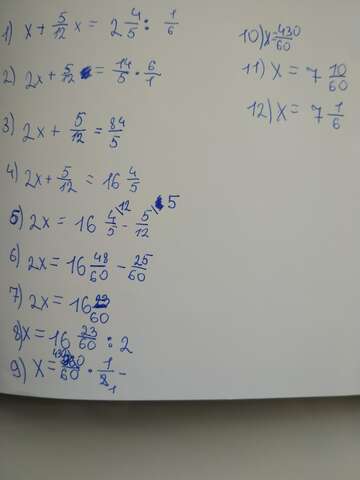 1) x + 5/12 x = 2 4/5 : 1/6
2) 2x + 5/12 = 14/5 · 6/1
3) 2x + 5/12 = 84/5
4) 2x + 5/12 = 16 4/5
5) 2x = 16 4/5 \12 - 5/12 \5
6) 2x = 16 48/60 - 25/60
7) 2x = 16 23/60
8) x = 16 23/60 : 2
9) x = /60 · 1/2 1 -
10) x = 430/60
11) x = 7 10/60
12) x = 7 1/6